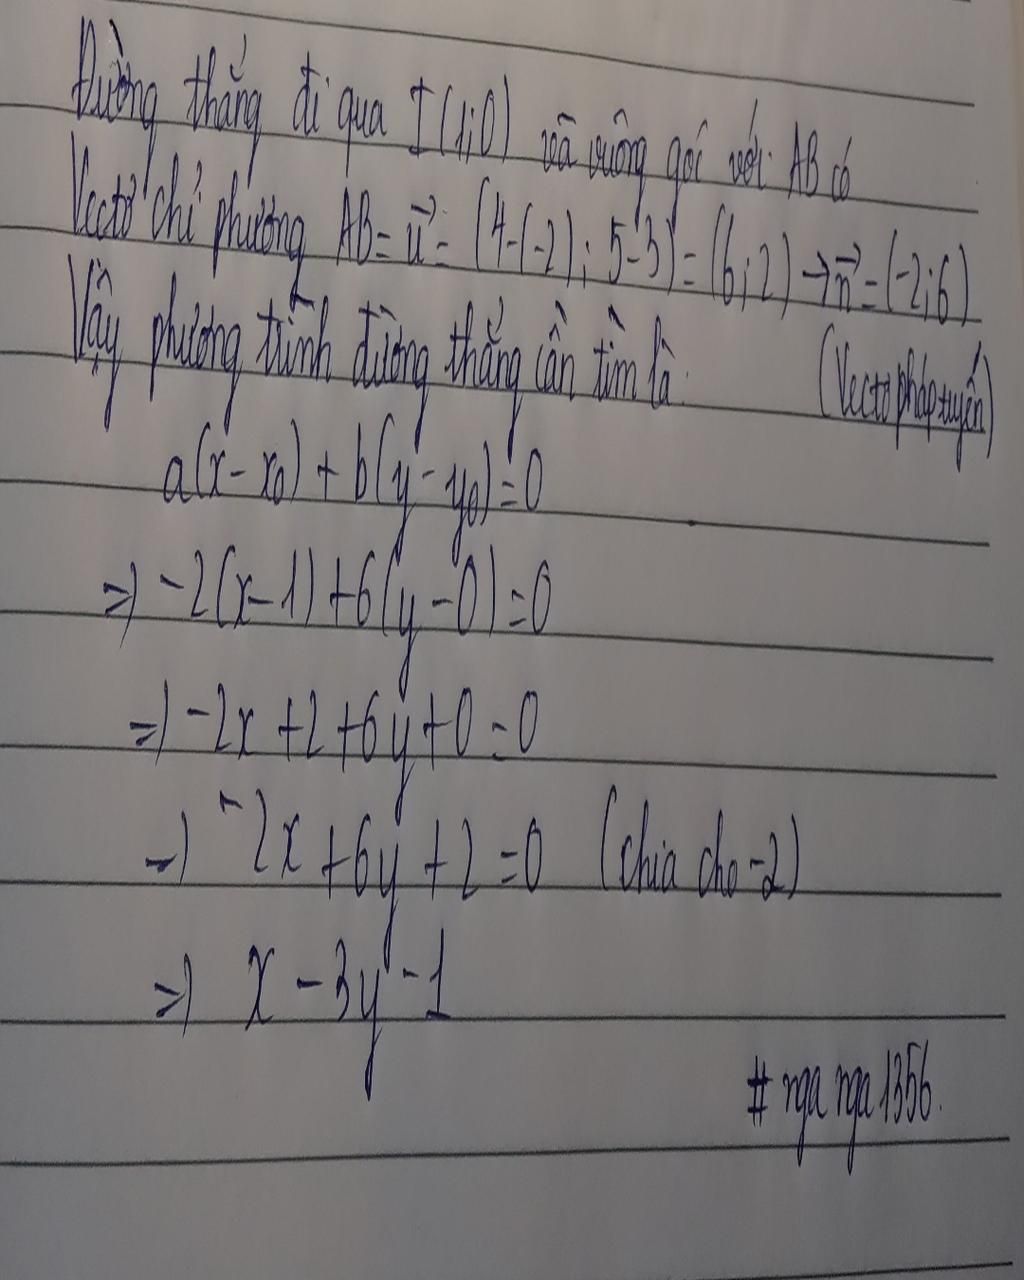 Đường thẳng đi qua I(1;0) và vuông góc với AB có
Vectơ chỉ phương AB = u⃗ = (4-(-2); 5-3) = (6;2) → n⃗ = (-2;6)
(Vectơ pháp tuyến)
Vậy phương trình đường thẳng cần tìm là:
a(x-x₀) + b(y-y₀) = 0
=> -2(x-1) + 6(y-0) = 0
=> -2x + 2 + 6y + 0 = 0
=> -2x + 6y + 2 = 0 (chia cho -2)
=> x - 3y - 1
# nga nga 1356.